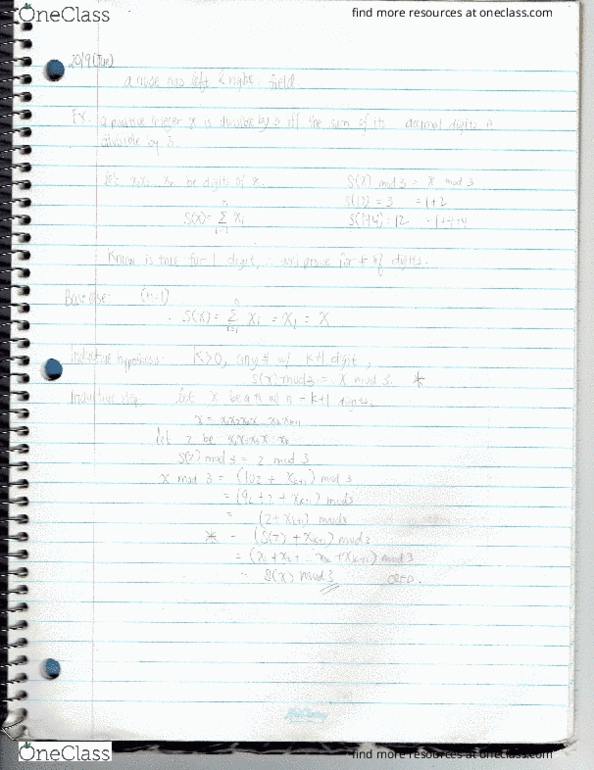 OneClass
find more resources at oneclass.com
20/9 (Tue)
a node has left & right field
Ex. a positive integer x is divisible by 3 iff the sum of its decimal digits is
divisible by 3.
let x₁x₂...xₙ be digits of x. S(x) mod 3 = x mod 3
S(12) = 3 = 1+2
S(x) = Σ xᵢ
Known is true for 1 digit, ∴ will prove for # of digits.
Base case: (n=1)
S(x) = Σ xᵢ = x₁ = x
Inductive hypothesis: K>0, any # w/ k digit,
S(x) mod 3 = x mod 3. *
Inductive step: let x be a # w/ n = k+1 digits.
let z be
S(z) mod 3 = z mod 3
x mod 3 = (10z + xₖ₊₁) mod 3
= (9z + z + xₖ₊₁) mod 3
= (z + xₖ₊₁) mod 3
* = (S(z) + xₖ₊₁) mod 3
= (x₁ + x₂ + ... xₖ + xₖ₊₁) mod 3
S(x) mod 3 QED.
OneClass
find more resources at oneclass.com